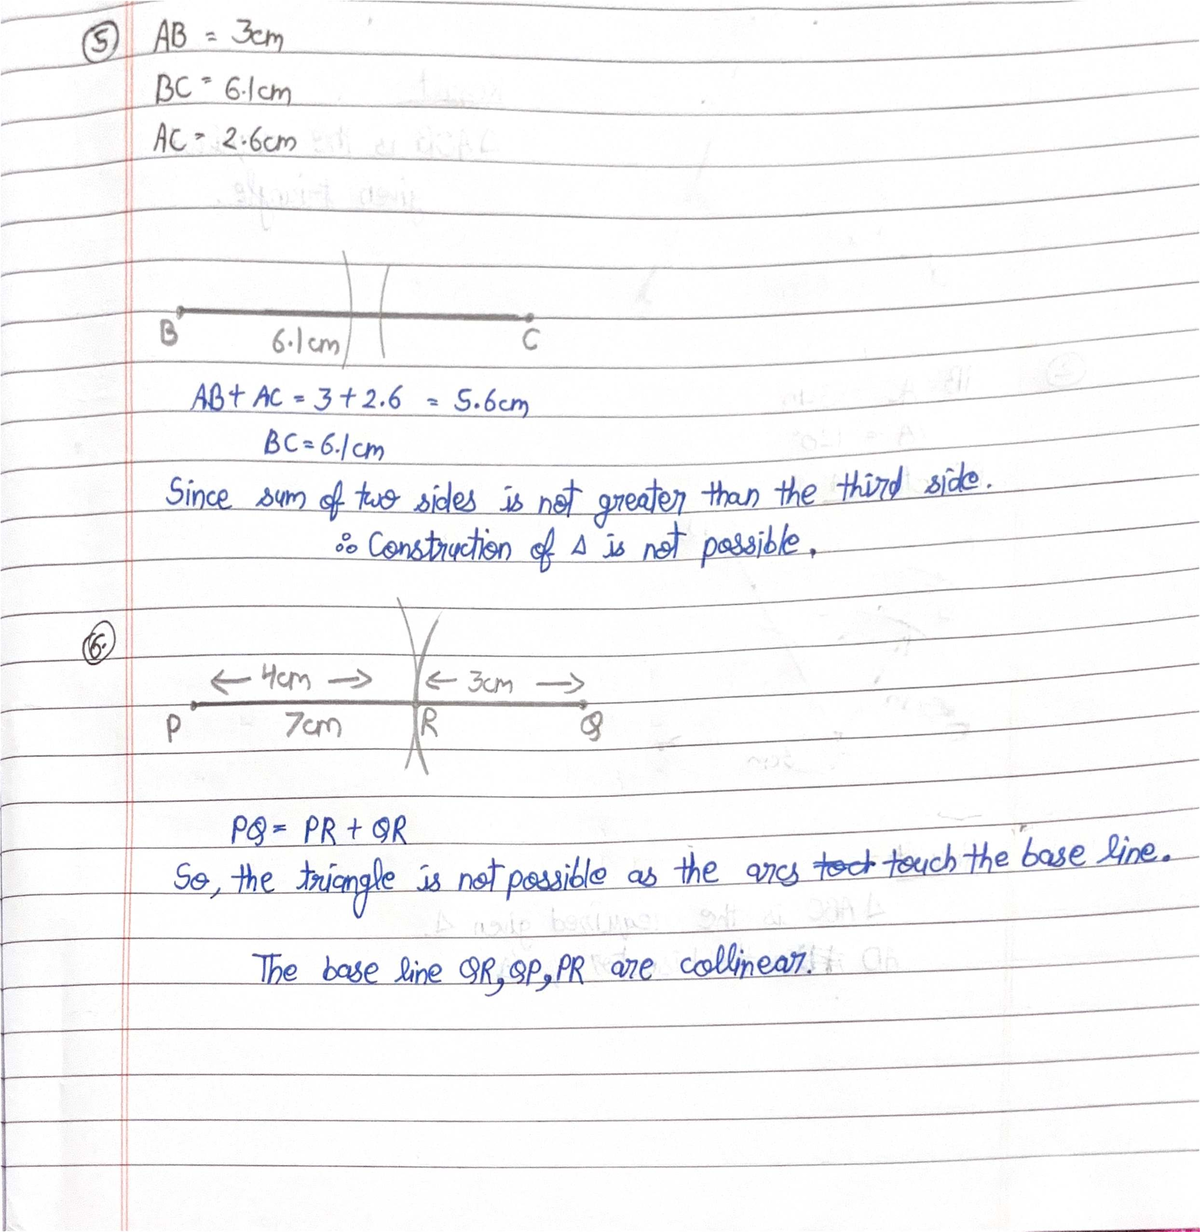 5 AB = 3cm
BC = 6.1cm
AC = 2.6cm
B 6.1cm C
AB + AC = 3 + 2.6 = 5.6cm
BC = 6.1cm
Since sum of two sides is not greater than the third side.
∴ Construction of Δ is not possible.
6.
← 4cm → ← 3cm →
P 7cm R Q
PQ = PR + QR
So, the triangle is not possible as the arcs toct touch the base line.
The base line QR, QP, PR are collinear.